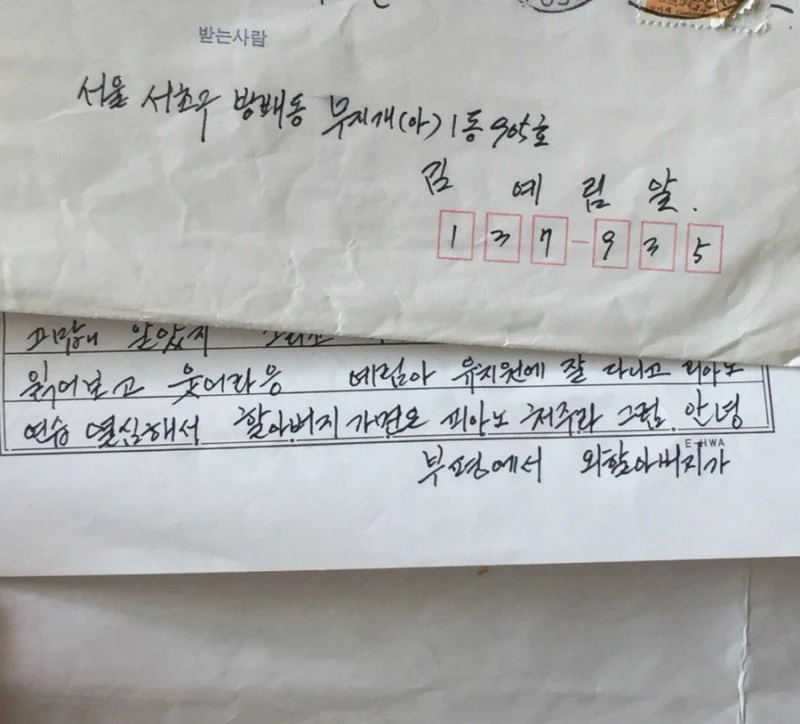 받는사람
서울 서초구 방배동 무지개(아) 1동 905호
김 예 림 앞.
137-935
고맙내 알았지 그리고
읽어보고 웃어라응 예림아 유치원에 잘 다니고 피아노
연습 열심해서 할아버지 가면은 피아노 처주라 그럼 안녕
E-HWA
부평에서 외할아버지가